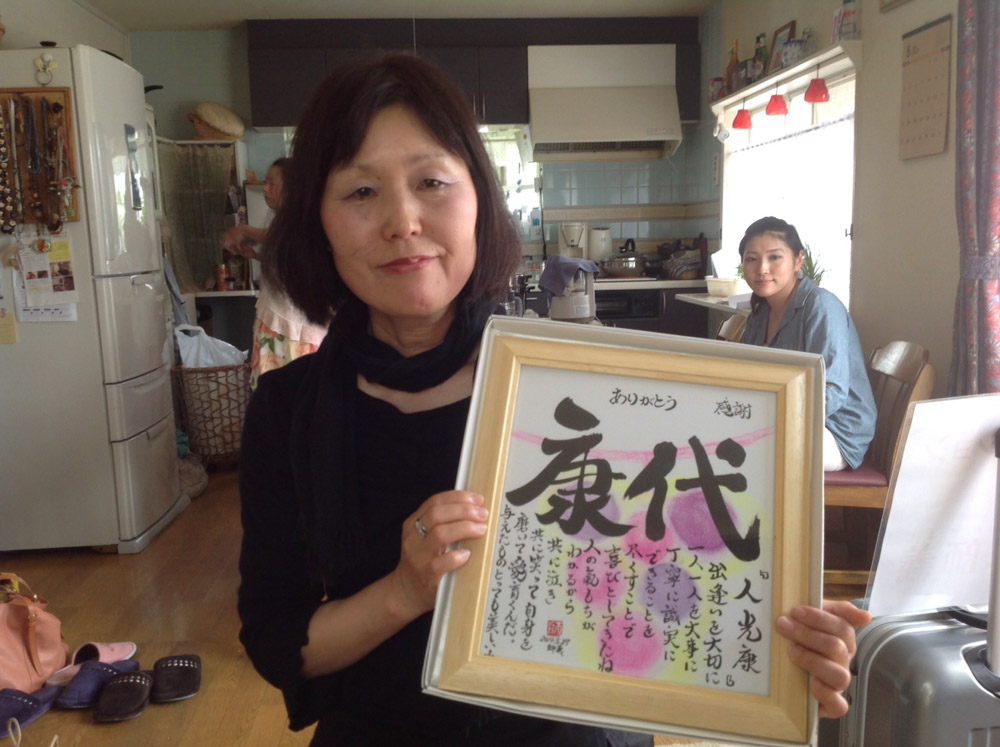 ありがとう
感謝
康代
「人光康」
出逢いを大切に
一人一人を大事に
丁寧に誠実に
できることを
尽くすことで
喜びとしてきたね
人の氣もちが
わかるから
共に泣き
共に笑って自身を
磨いて愛育くんだ。
与えたものとっても美しい。